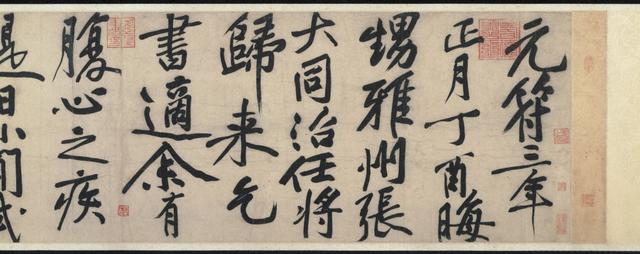 元符三年
正月丁酉晦
甥雅州張
大同治任將
歸来乞
書適余有
腹心之疾
是日小